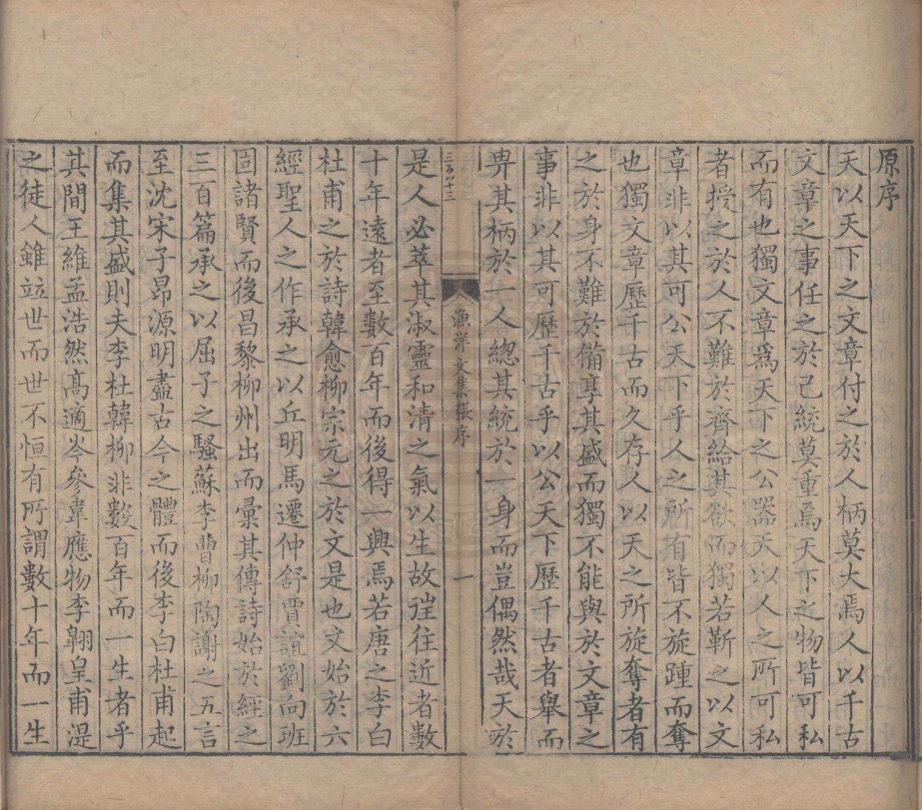 原序
天以天下之文章付之於人柄莫大焉人以千古
文章之事任之於已統莫重焉天下之物皆可私
而有也獨文章爲天下之公器天以人之所可私
者授之於人不難於齊給其欲而獨若靳之以文
章非以其可公天下乎人之所有皆不旋踵而奪
也獨文章歷千古而久存人以天之所旋奪者有
之於身不難於備享其盛而獨不能與於文章之
事非以其可歷千古乎以公天下歷千古者舉而
畀其柄於一人總其統於一身而豈偶然哉天於
漁洋文集 序 一
是人必萃其淑靈和清之氣以生故往往近者數
十年遠者至數百年而後得一興焉若唐之李白
杜甫之於詩韓愈柳宗元之於文是也文始於六
經聖人之作承之以丘明馬遷仲舒賈誼劉向班
固諸賢而後昌黎柳州出而彙其傳詩始於經之
三百篇承之以屈子之騷蘇李曹柳陶謝之五言
至沈宋子昂源明盡古今之體而後李白杜甫起
而集其盛則夫李杜韓柳非數百年而一生者乎
其間王維孟浩然高適岑參韋應物李翶皇甫湜
之徒人雖竝世而世不恒有所謂數十年而一生